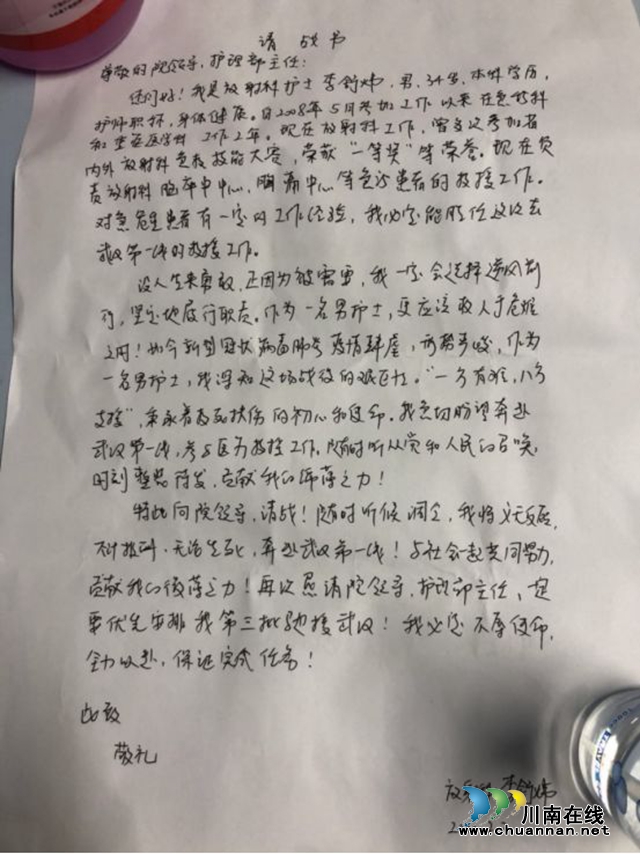 请战书
尊敬的院领导,护理部主任:
您们好!我是放射科护士李舒炜,男,34岁,本科学历,
护师职称,身体健康。自2008年5月参加工作以来在急诊科
和重症医学科工作2年。现在放射科工作,曾多次参加省
内外放射科急救技能大赛,荣获“一等奖”等荣誉。现在负
责放射科脑卒中中心,胸痛中心等急诊患者的救援工作。
对急危重患者有一定的工作经验,我必定能胜任这次去
武汉第一线的救援工作。
没人生来勇敢,正因为被需要,我一定会选择逆风前
行,坚定地履行职责。作为一名男护士,更应该救人于危难
之间!如今新型冠状病毒肺炎疫情肆虐,形势严峻,作为
一名男护士,我深知这场战役的艰巨性。“一方有难,八方
支援”,秉承着救死扶伤的初心和使命。我急切盼望奔赴
武汉第一线,参与医疗救援工作。随时听从党和人民的召唤,
时刻整装待发,贡献我的绵薄之力!
特此向院领导,请战!随时听候调令,我将义无反顾,
不计报酬,无论生死,奔赴武汉第一线!与社会一起共同努力,
贡献我的绵薄之力!再次恳请院领导,护理部主任,
优先安排我第三批驰援武汉!我必定不辱使命,
全力以赴,保证完成任务!
此致
敬礼
李舒炜
川南在线
www.chuannan.net